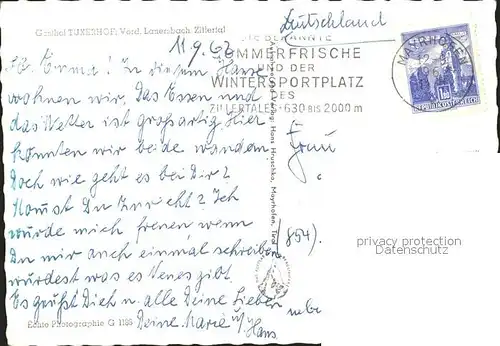 Gasthof TUXERHOF, Vord. Lanersbach Zillertal
11.9.62
Lb. Emma! In diesem Hause
wohnen wir. Das Essen und
das Wetter ist großartig. Hier
könnten wir beide wandern.
Doch wie geht es bei Dir?
Komst Du zurecht? Ich
würde mich freuen, wenn
Du mir auch einmal schreiben
würdest was es Neues gibt.
Es grüßt Dich u. alle Deine Lieben
Deine Marie u. Hans
Echte Photographie G 1185
Verlag: Hans Hruschka, Mayrhofen, Tirol
Deutschland
SOMMERFRISCHE
UND DER
WINTERSPORTPLATZ
DES
ZILLERTALES · 630 BIS 2000 m
MAYRHOFEN
REPUBLIK ÖSTERREICH
Frau
(854).
privacy protection
Datenschutz